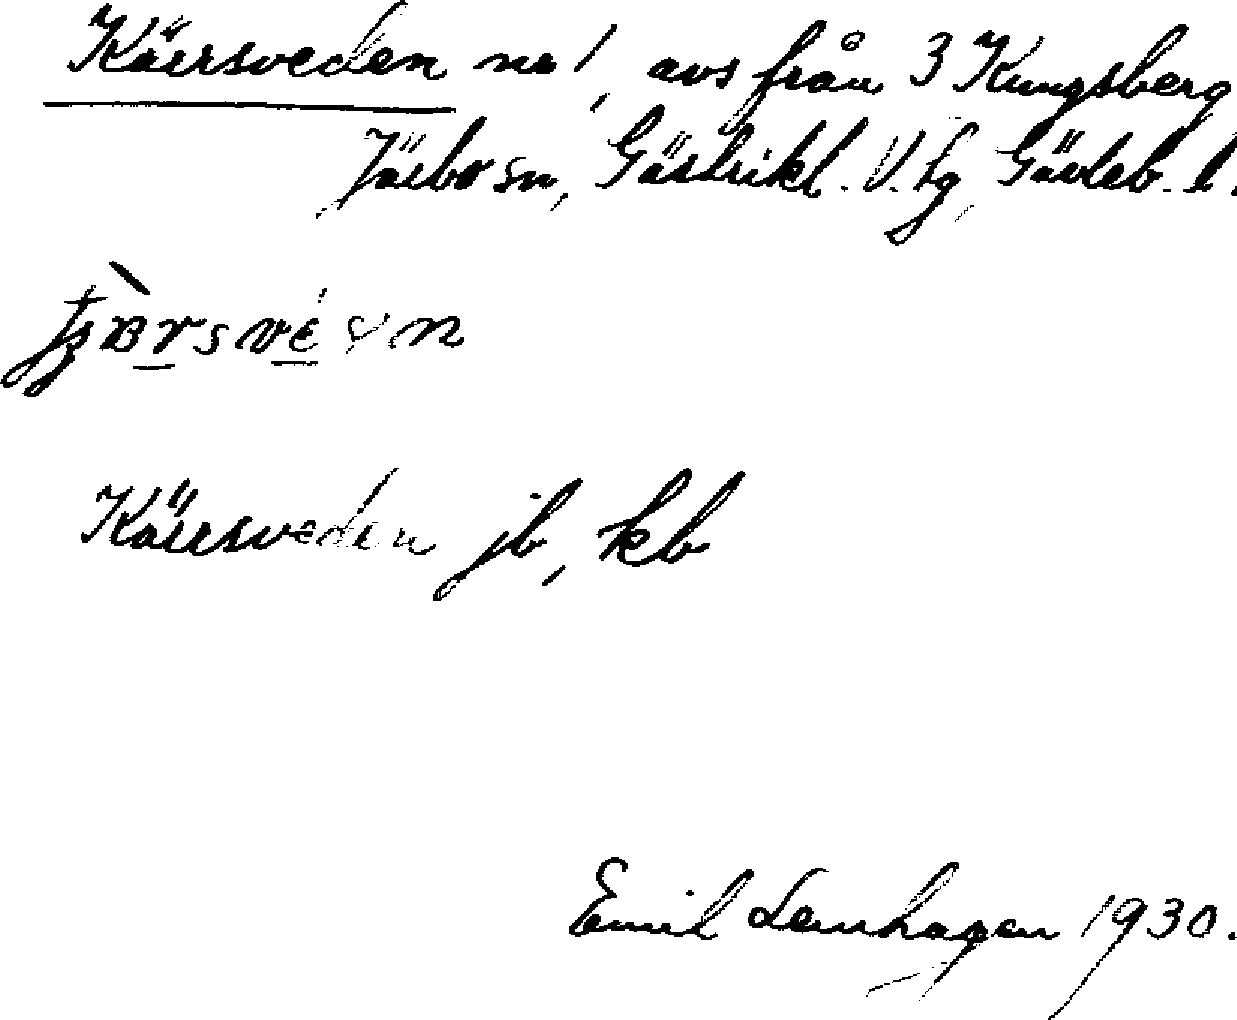 Kärrsveden nr 1, avs från 3 Kungsberg
Järbo sn, Gästrikl. V. tg, Gävleb. l.
Kärrsveden jb, kb
Emil Lenhagen 1930.